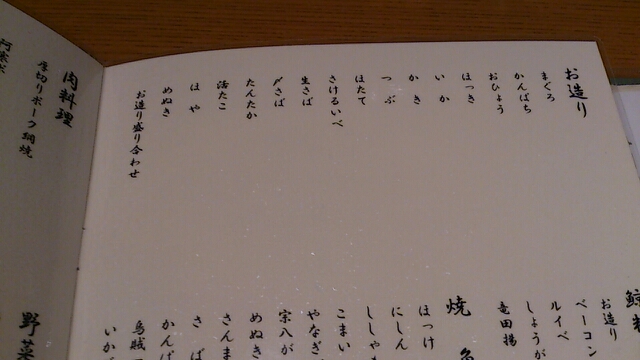 お造り
まぐろ
かんぱち
おひょう
ほっき
いか
かき
つぶ
ほたて
さけるいべ
生さば
〆さば
たんたか
活たこ
ほや
めぬき
お造り盛り合わせ
お造り
ベーコン
ルイベ
しょうが
竜田揚
焼
ほっけ
にしん
ししゃも
こまい
やなぎ
宗八が
めぬき
さんま
さば
かんぱ
烏賊
いか
肉料理
厚切りポーク網焼
野菜